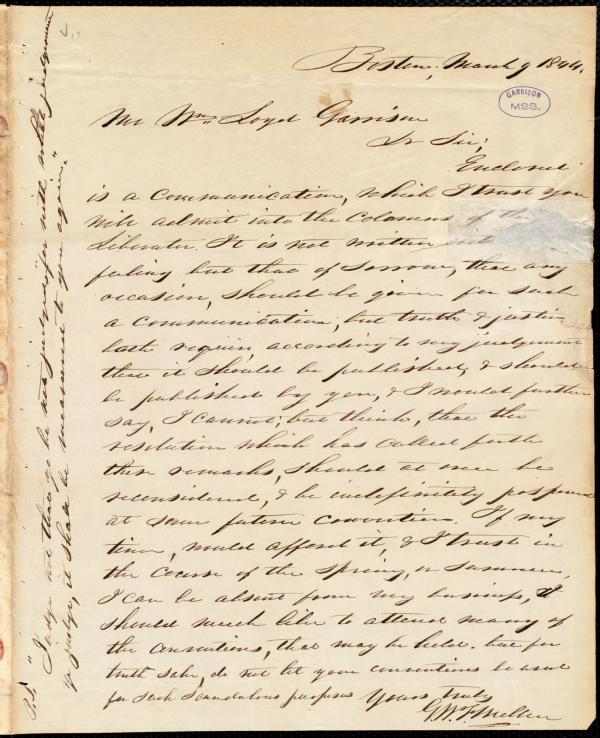 Boston, March 9 1844.
GARRISON
MSS.
Mr Wm Loyd Garrison
Dr Sir;
Enclosed
is a communication, which I trust you
will admit into the Colomns of the
Liberator. It is not written
feeling but that of sorrow, that any
occasion, should be given for such
a communication, but truth & justice
both require, according to my judgement
that it should be published, & should
be published by you, & I would further
say, I cannot, but think, that the
resolution which has called forth
these remarks, should at once be
reconsidered, & be indefinitely postponed
at some future convention. If my
time, would afford it, & I trust in
the course of the Spring, or Summer,
I can be absent from my business, I
should much like to attend many of
the conventions, that may be held. but for
truth sake, do not let your conventions be used
for such scandalous purposes
Yours, truly
G. W. F. Mellen
P.S. "Judge not that ye be not judged, for with what judgement
ye judge, it shall be measured to you again."